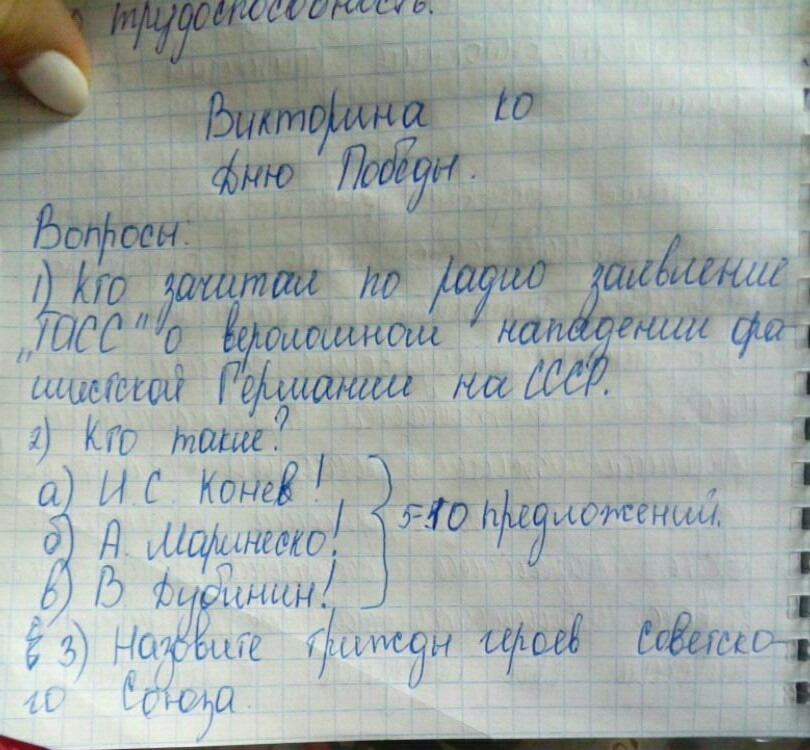 трудоспособность.
Викторина ко
Дню Победы.
Вопросы:
1) Кто зачитал по радио заявление
„ТАСС" о вероломном нападении фа-
шистской Германии на СССР.
2) Кто такие?
а) И.С. Конев!
б) А. Маринеско! 5-10 предложений.
в) В Дубинин!
3) Назовите трижды героев Советско-
го Союза.